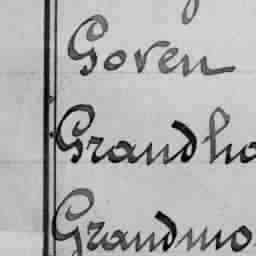 Goven
Grandho
Grandmo